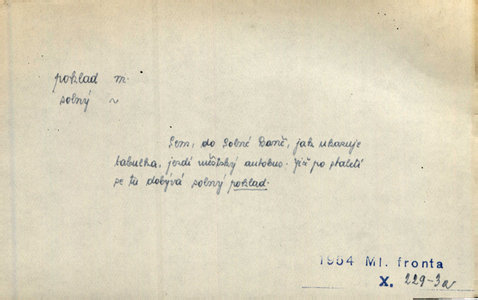 poklad m.
solný ~
Sem, do Solné Baně, jak ukazuje
tabulka, jezdí městský autobus. Již po staletí
se tu dobývá solný poklad.
1954 Ml. fronta
X. 229-3a